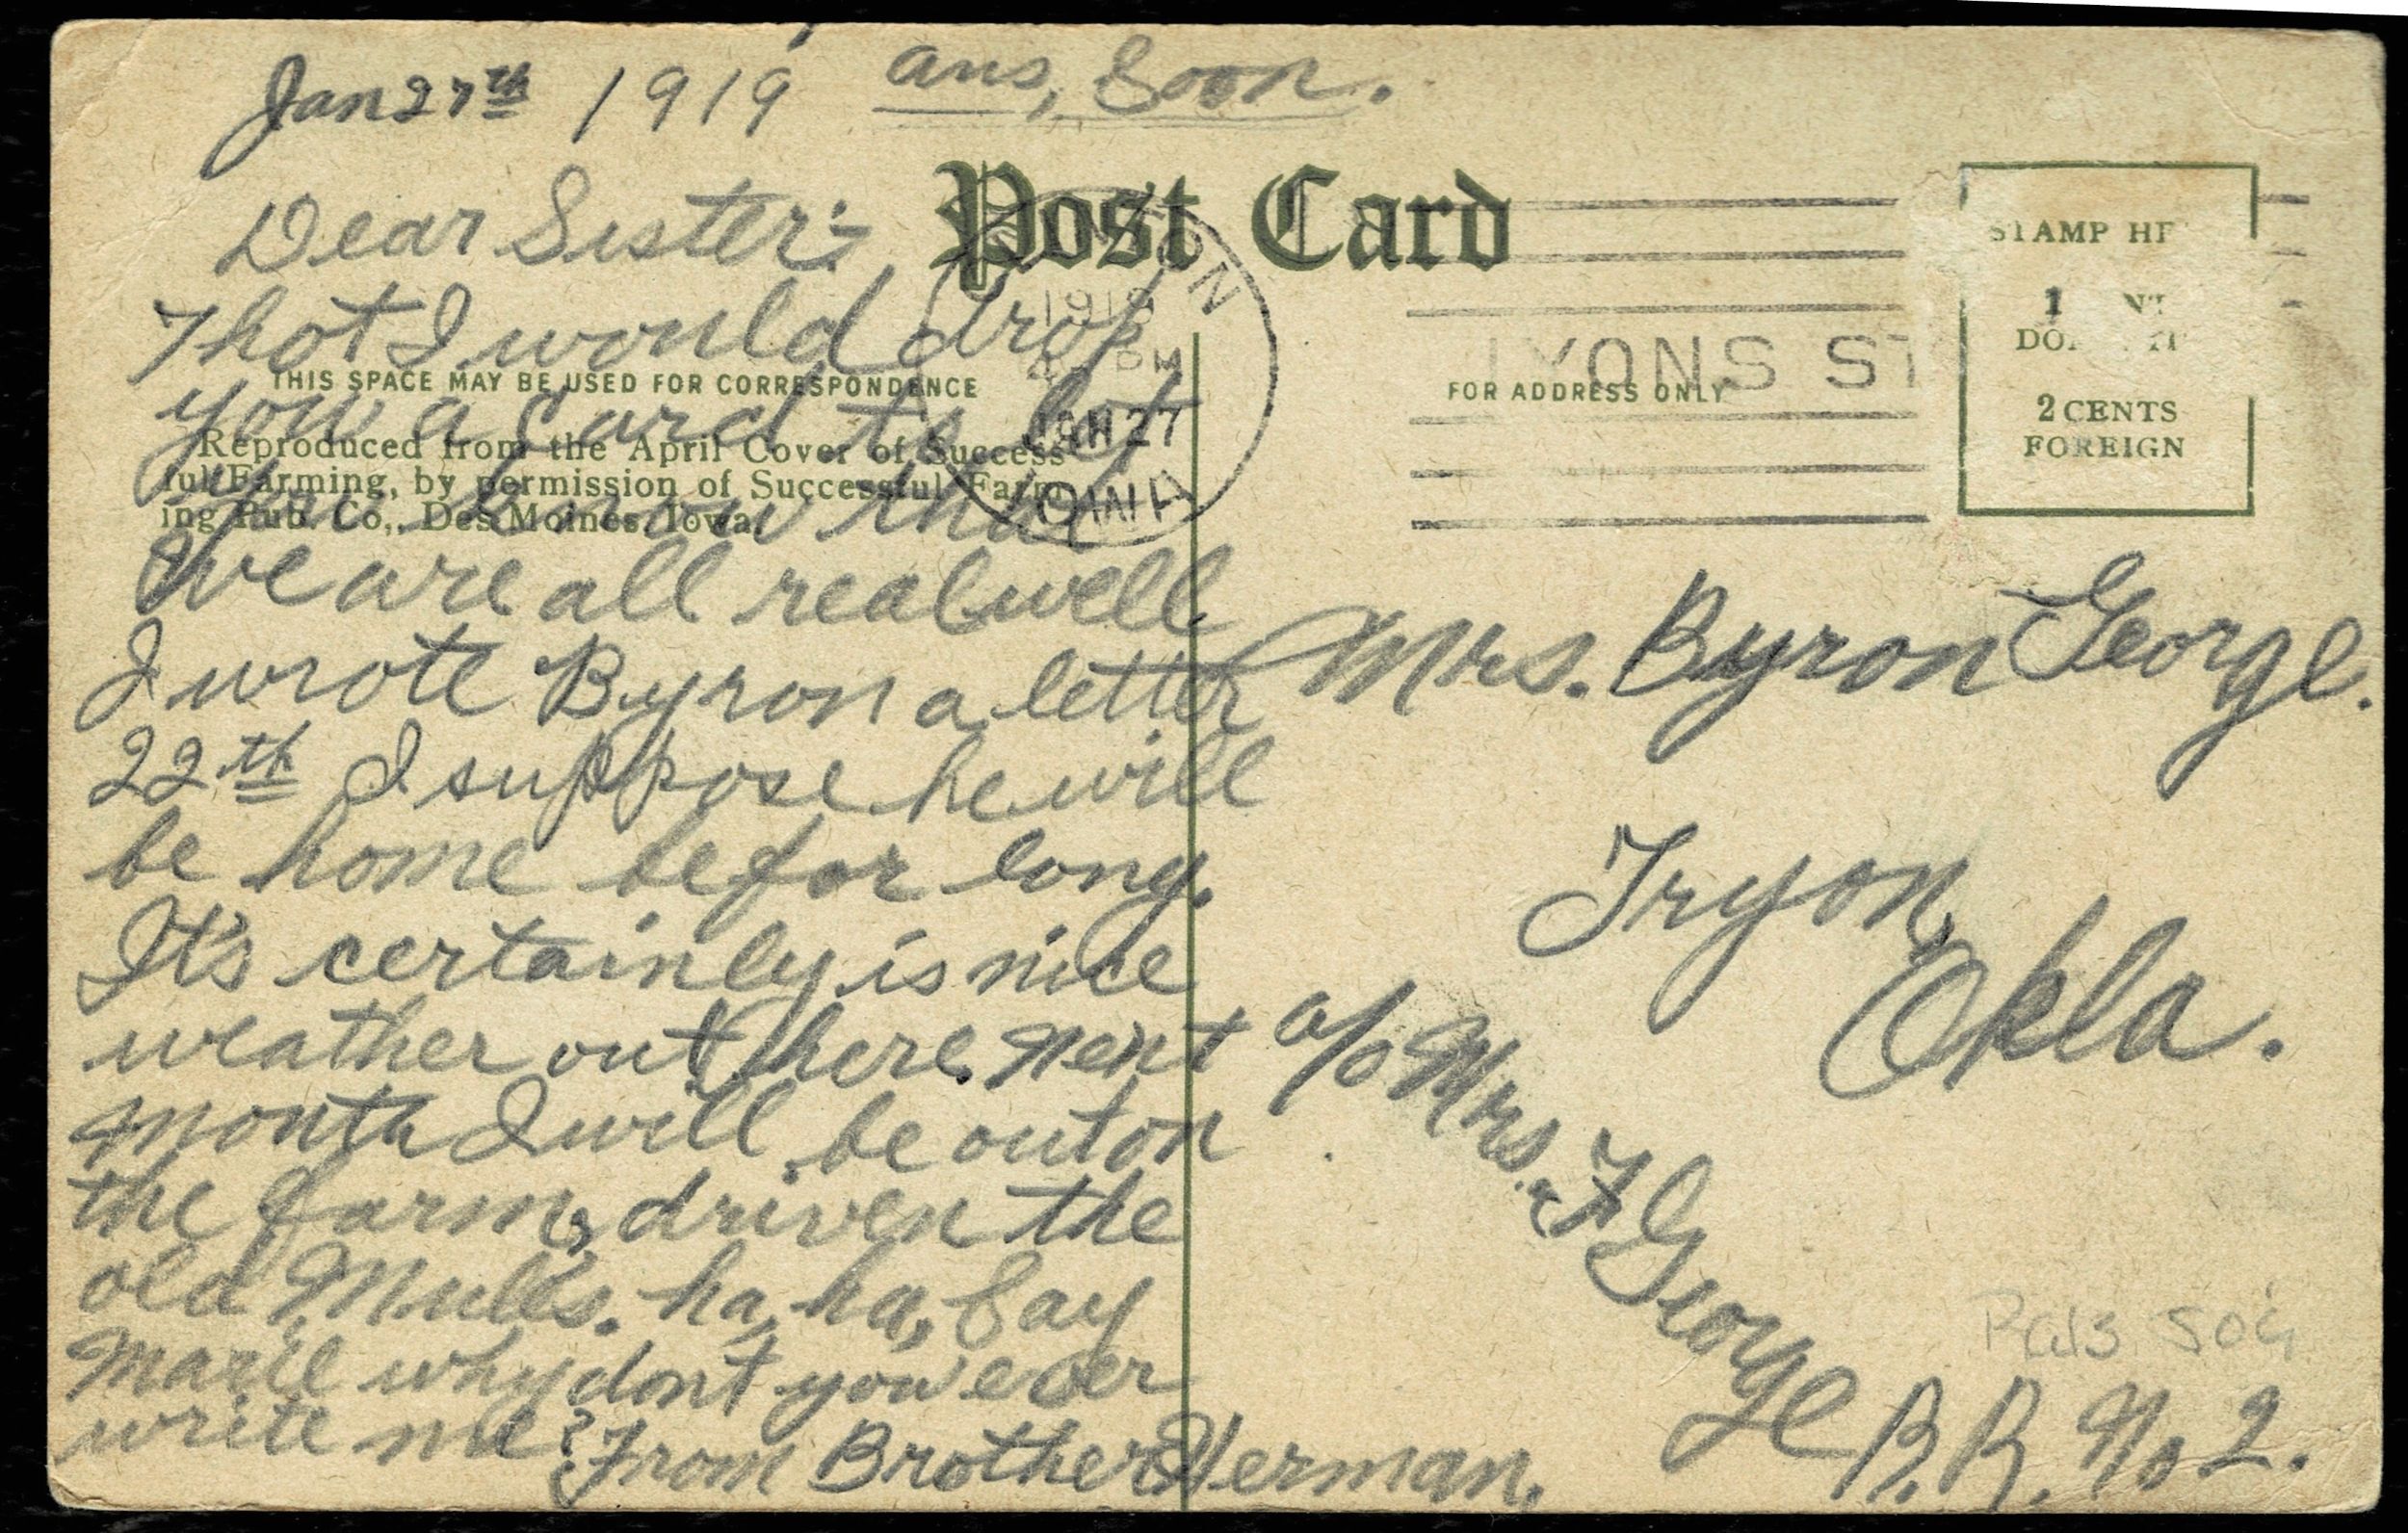 Jan 27th 1919 ans, Soon.
Dear Sister:
Thot I would drop
you a Card to let
you know that
we are all real well
I wrote Byron a letter
22th I suppose he will
be home befor long.
It's certainly is nice
weather out here. Next
month I will be out on
the farm, driven the
old Mules. ha, ha, Say
why dont you ever
write me?
From Brother Herman.
Post Card
THIS SPACE MAY BE USED FOR CORRESPONDENCE
Reproduced from the April Cover of Success
ful Farming, by permission of Successful Farm
ing Pub. Co., Des Moines, Iowa.
1919
PM
JAN 27
IOWA
LYONS ST
FOR ADDRESS ONLY
STAMP HE
1 NT
DO
2 CENTS
FOREIGN
Mrs. Byron George.
Tryon,
Okla.
c/o Mrs. F George
R.R. No 2.